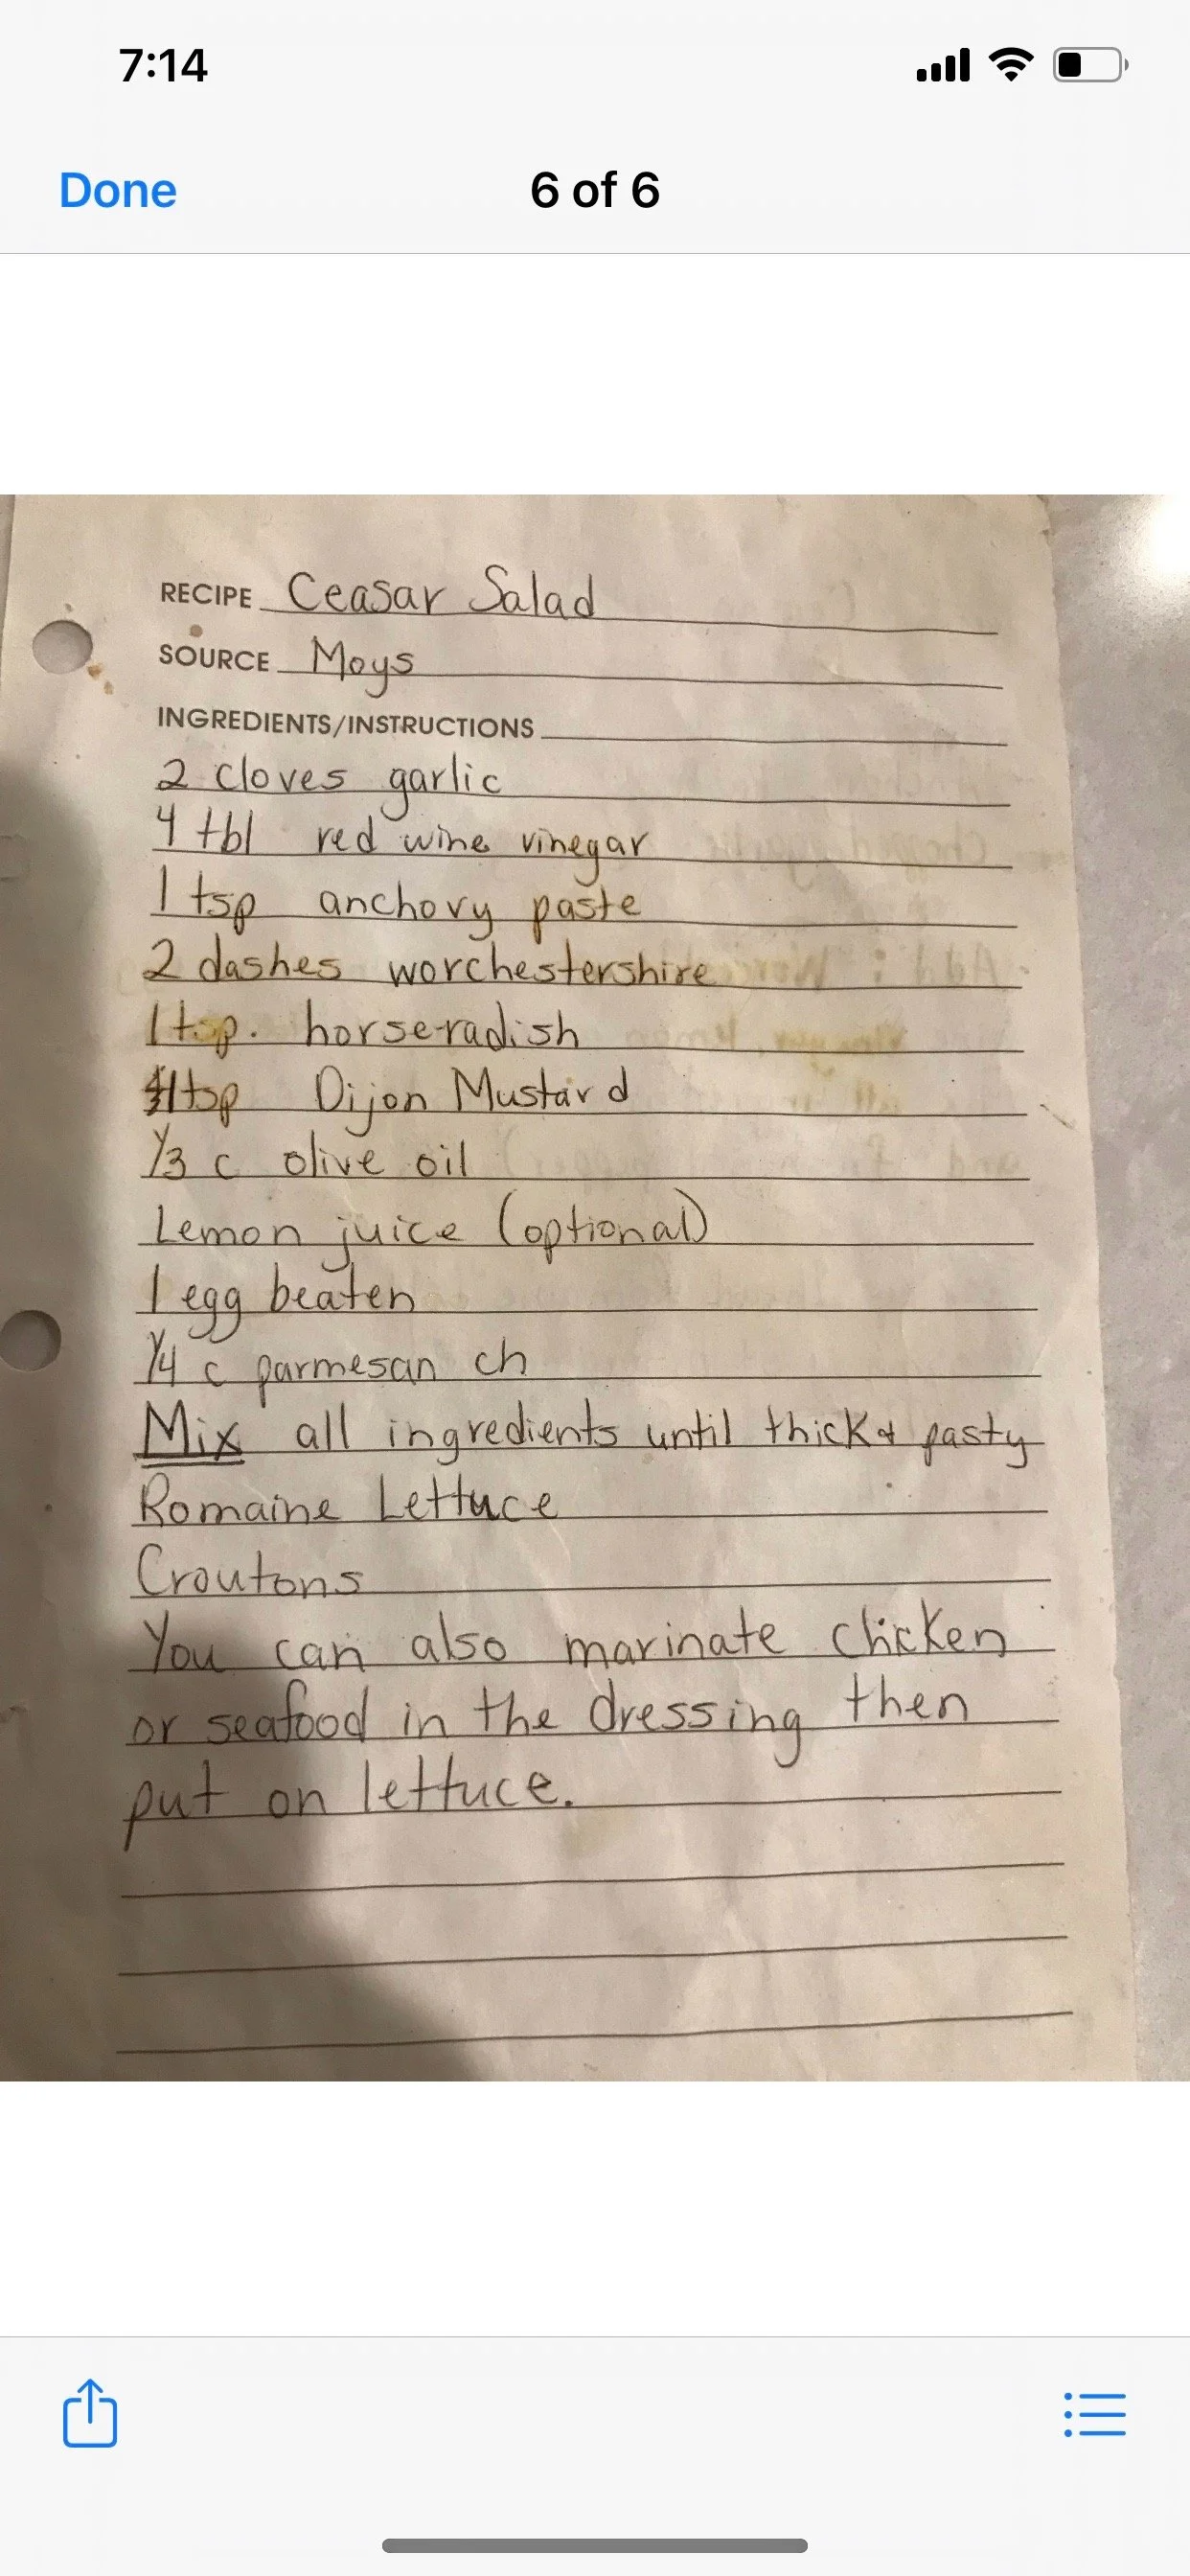 7:14
Done 6 of 6
RECIPE Ceasar Salad
SOURCE Moys
INGREDIENTS/INSTRUCTIONS
2 cloves garlic
4 tbl red wine vinegar
1 tsp anchovy paste
2 dashes worchestershire
1 tsp. horseradish
1 tsp Dijon Mustard
1/3 c olive oil
Lemon juice (optional)
1 egg beaten
1/4 c parmesan ch
Mix all ingredients until thick & pasty
Romaine Lettuce
Croutons
You can also marinate chicken
or seafood in the dressing then
put on lettuce.